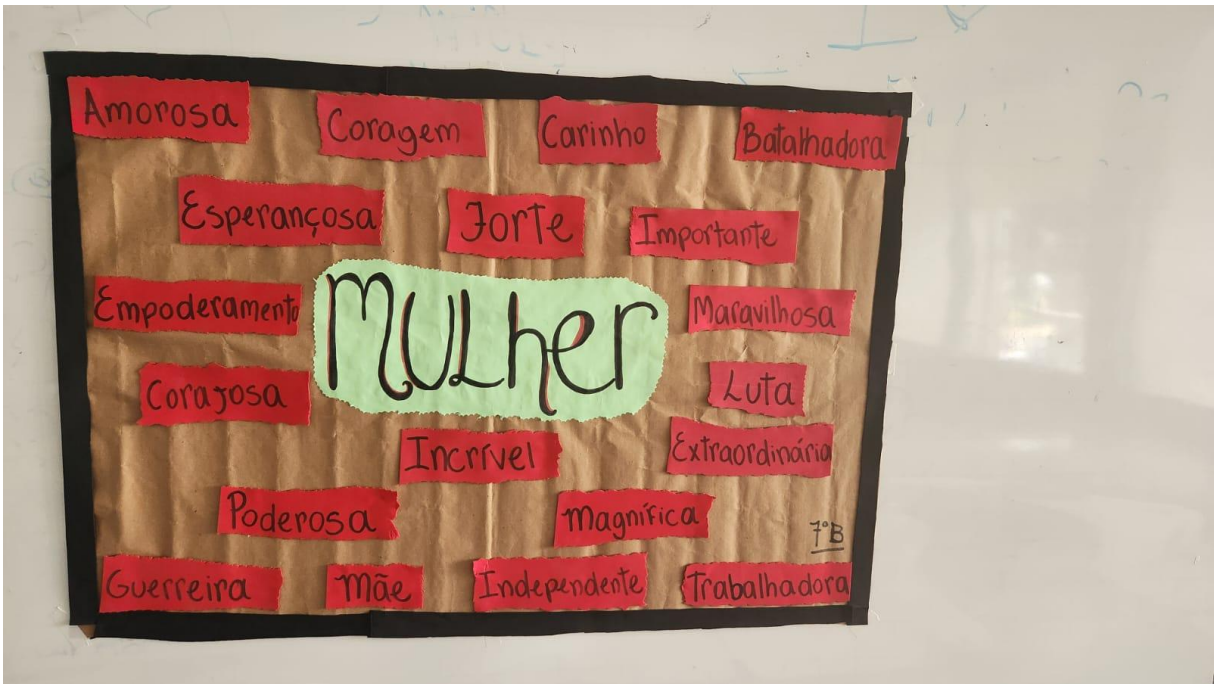 Amorosa
Coragem
Carinho
Batalhadora
Esperançosa
Forte
Importante
Empoderamento
MULher
Maravilhosa
Corajosa
Luta
Incrível
Extraordinária
Poderosa
Magnífica
7°B
Guerreira
Mãe
Independente
Trabalhadora